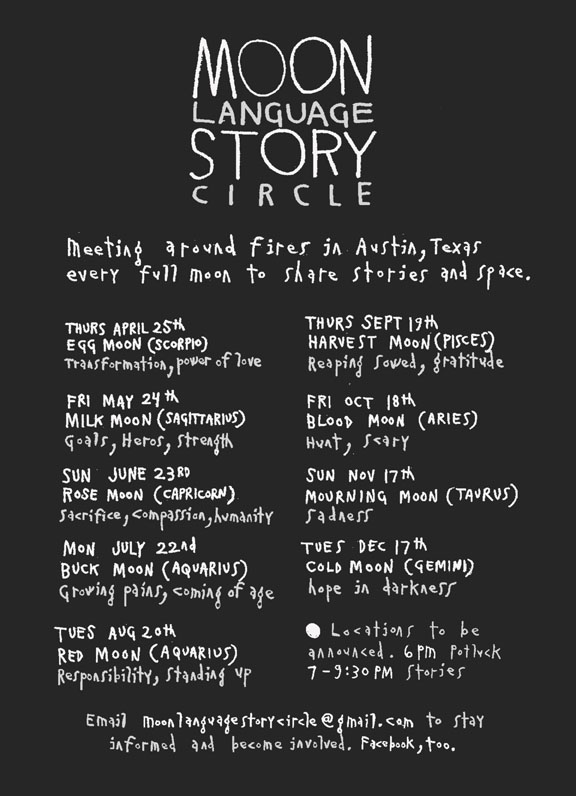 MOON
LANGUAGE
STORY
CIRCLE
Meeting around fires in Austin, Texas
every full moon to share stories and space.
THURS APRIL 25th
EGG MOON (SCORPIO)
Transformation, power of love
FRI MAY 24th
MILK MOON (SAGITTARIUS)
Goals, Heros, strength
SUN JUNE 23RD
ROSE MOON (CAPRICORN)
Sacrifice, compassion, humanity
MON JULY 22nd
BUCK MOON (AQUARIUS)
Growing pains, coming of age
TUES AUG 20th
RED MOON (AQUARIUS)
Responsibility, standing up
THURS SEPT 19th
HARVEST MOON (PISCES)
Reaping sowed, gratitude
FRI OCT 18th
BLOOD MOON (ARIES)
Hunt, scary
SUN NOV 17th
MOURNING MOON (TAURUS)
Sadness
TUES DEC 17th
COLD MOON (GEMINI)
hope in darkness
Locations to be
announced. 6 PM Potluck
7-9:30 PM Stories
Email moonlanguagestorycircle@gmail.com to stay
informed and become involved. Facebook, too.